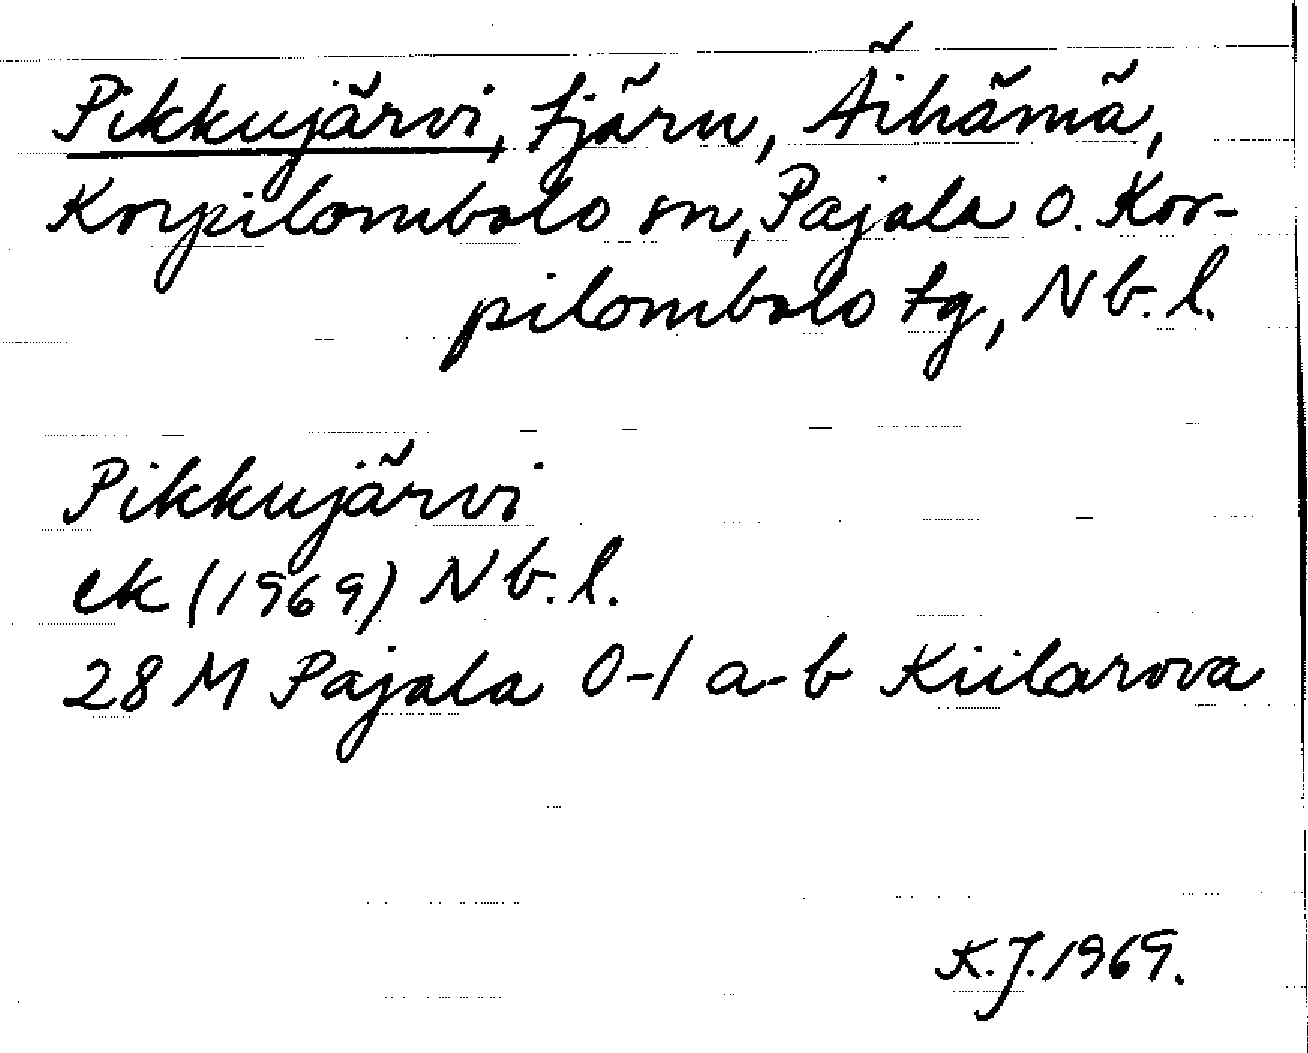 Pikkujärvi, tjärn, Äihämä,
Korpilombolo sn, Pajala o. Kor-
pilombolo tg, Nb. l.
Pikkujärvi
ek (1969) Nb. l.
28 M Pajala 0-1 a-b Kiilarova
K.J. 1969.